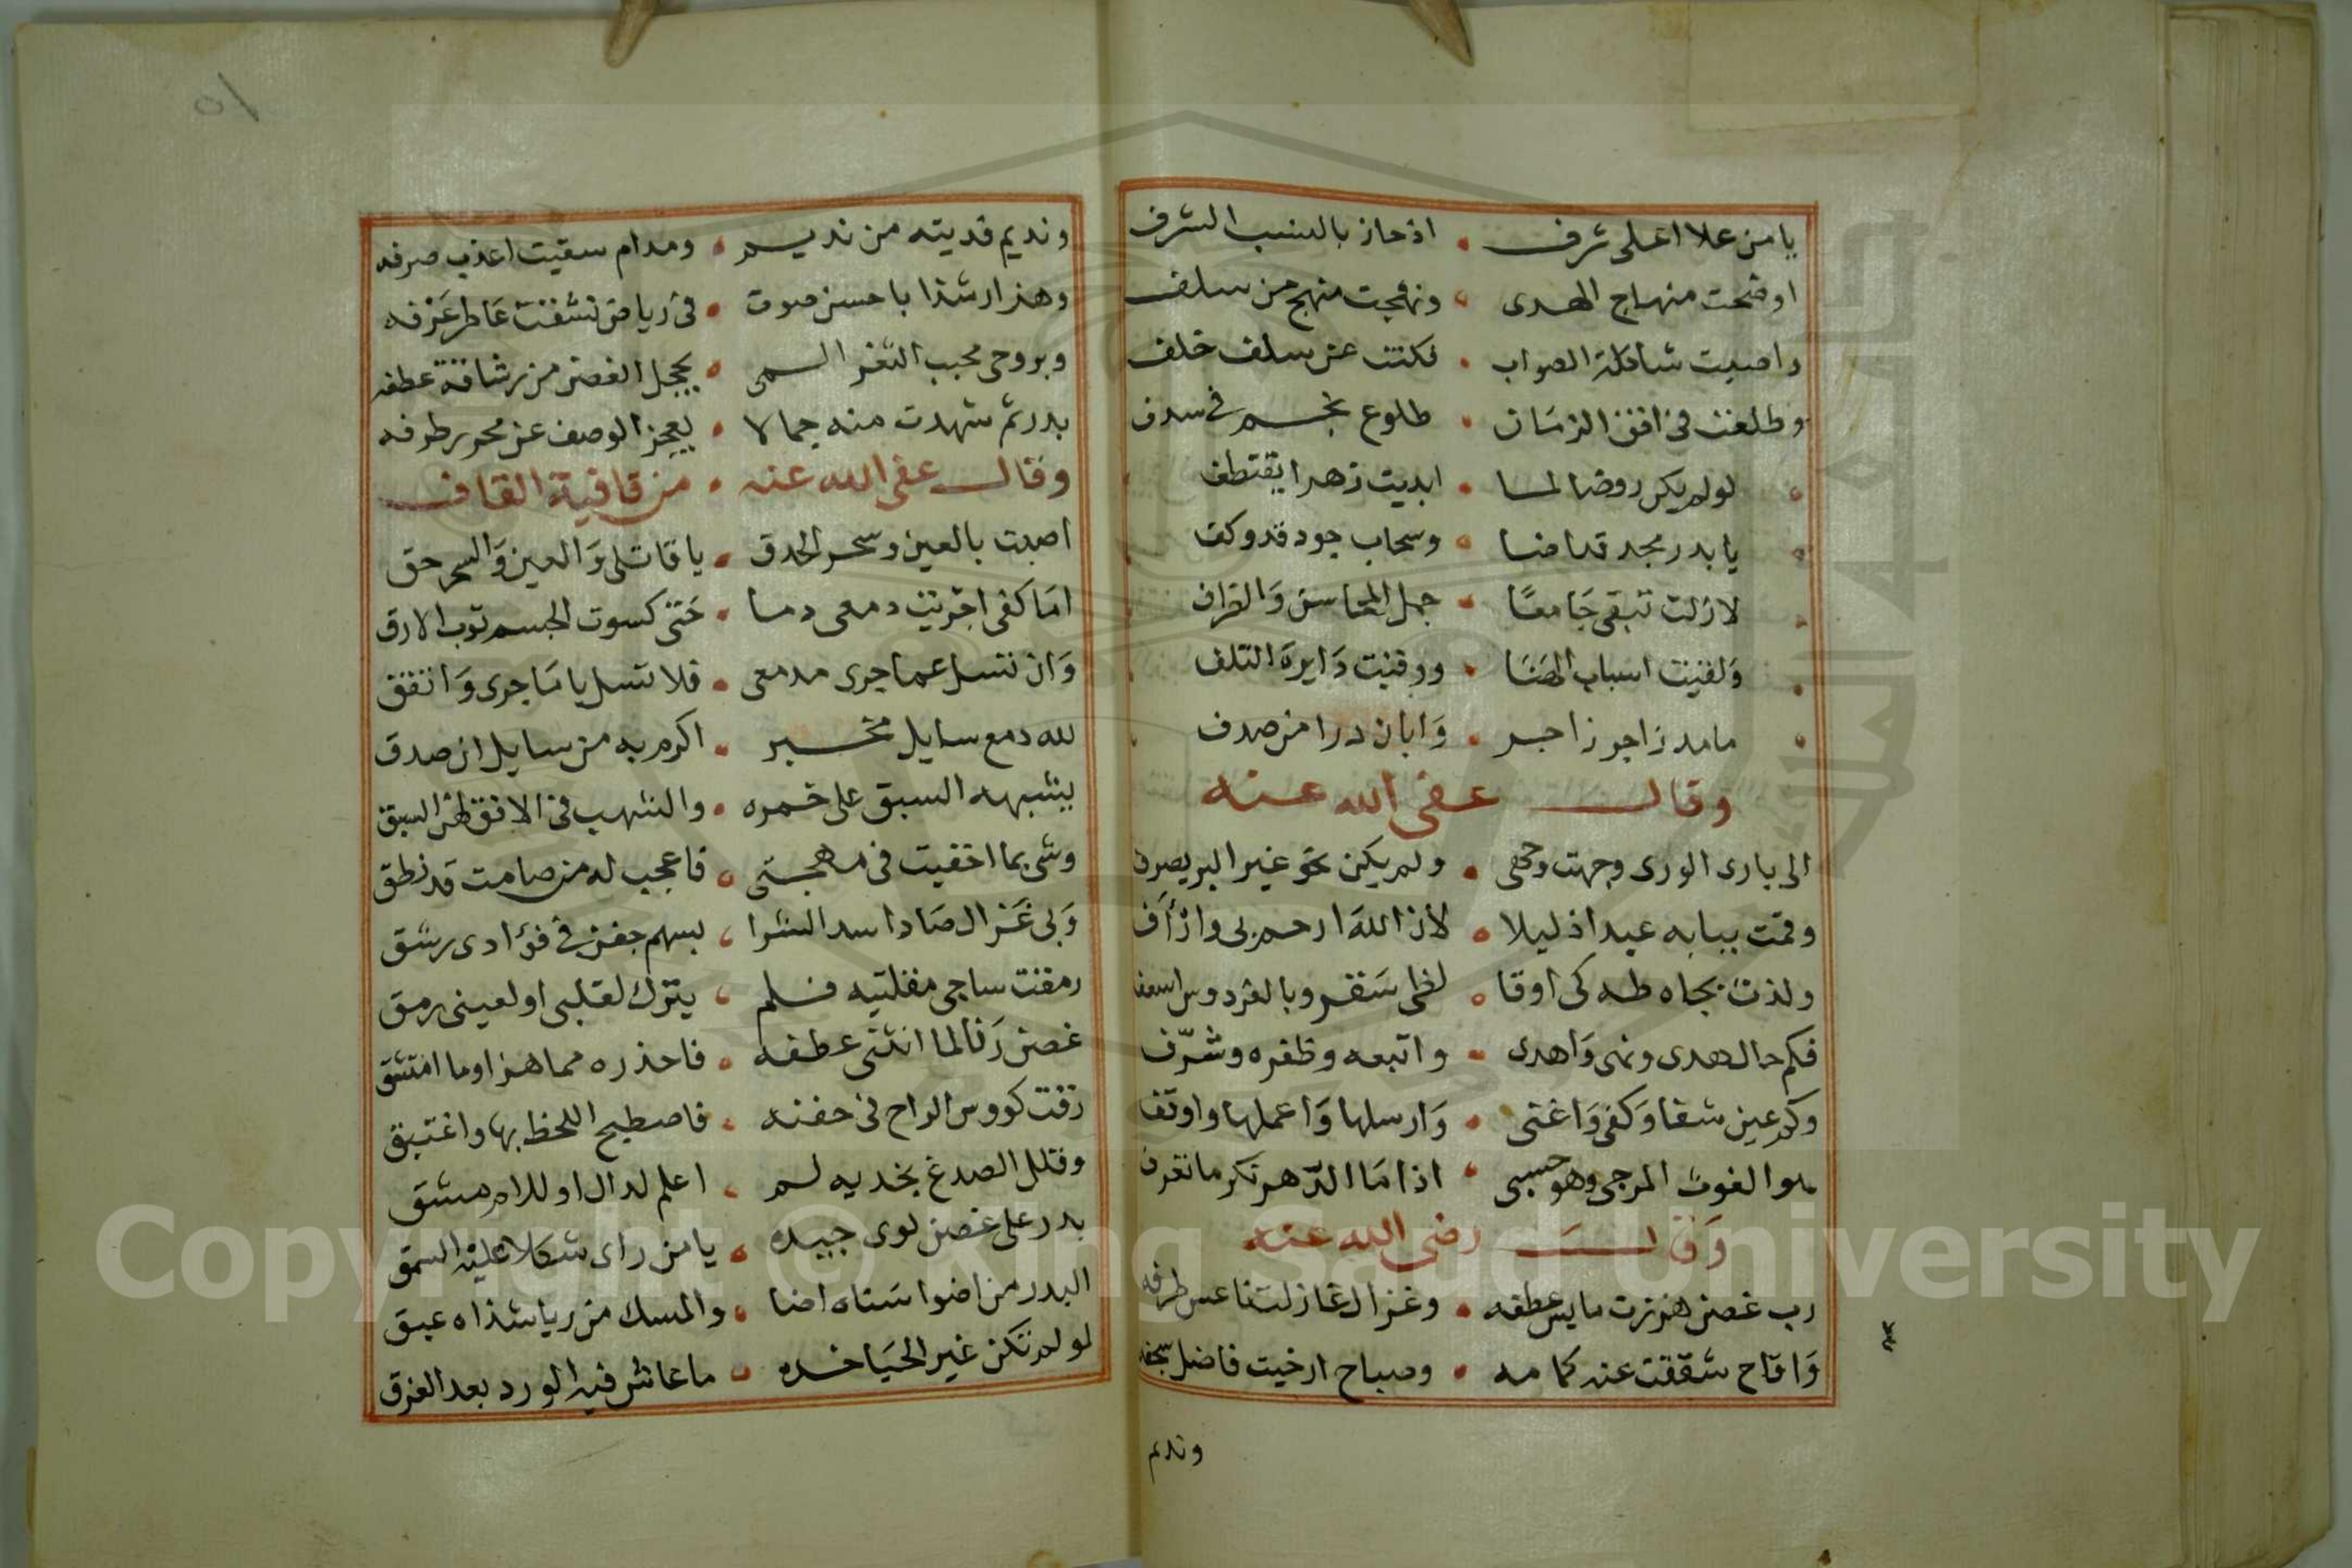 يا من علا اعلى شرف • اذ حاز بالنسب الشرف
اوضحت منهاج الهدى • ونهجت منهج من سلف
واصبت شاكلة الصواب • فكنت عن سلف خلف
وطلعت في افق الزمان • طلوع نجم في سدف
لو لم يكن روضا لما • ابديت زهرا يقتطف
يا بدر مجد قد اضا • وسحاب جود قد وكف
لا زلت تبقى جَامعًا • جمل المحاسن وَالظراف
وَلقيت اسباب الهَنَا • ووقيت دَايرة التلف
ما مد زاجر زاخر • وَابان درا من صدف
وقال عفى الله عنه
الى بارى الورى وجهت وجهى • ولم يكن نحو غير البر يصرف
وقمت ببابه عبدا ذليلا • لأن الله ارحم بى وارْأَف
ولذت بجاه طه كى اوقا • لظى سقر وبالفردوس اسعف
فكم حال هدى ونهى وَاهدى • واتبعه وظفره وشرّف
وكم عين شفا وَكفى وَاغنى • وَارسلها وَاعملها واوقف
هو الغوث المرجى وهو حسبى • اذا مَا الدّهر نكر ما تعرف
وَقال رضى الله عنه
رب غصن هززت مايس عطفه • وغزال غازلت ناعس طرفه
وَاقاح شققت عنه كمامه • وصباح ارخيت فاضل سجفه
ونديم
٥١
ونديم فديته من نديم • ومدام سقيت اعذب صرفه
وهزار شذا باحسن صوت • في رياض نشقت عَاطر عَرْفه
وبروحى محبب الثغر المى • يخجل الغصن من رشاقة عطفه
بدر تم شهدت منه جمالا • يعجز الوصف عن محرر طرفه
وقال عفى الله عنه • من قافية القاف
اصبت بالعين وسحر الحدق • يا قاتلى وَالعين وَالسحر حق
امَا كفى اجريت دمعى دما • حَتى كسوت الجسم ثوب الارق
وَان تسل عما جرى مدمعى • فلا تسل يا مَا جرى وَاتفق
لله دمع سايل مخبر • اكرم به من سايل ان صدق
يشبهه السبق على خمره • والشهب في الافق لهن السبق
وشى بما اخفيت في مهجتى • فاعجب له من صامت قد نطق
وَبى غَزال صَاد اسد الشرا • بسهم جفن في فؤادى رشق
رمقت ساجى مقلتيه فلم • يترك لقلبى او لعينى رمق
غصن رَنا لما انثنى عطفه • فاحذره مما هزا وما امتشق
رقت كووس الراح في جفنه • فاصطبح اللحظ بها واغتبق
وقلل الصدغ بخديه لم • اعلم لدال او للام مشق
بدر على غصن لوى جيده • يا من راى شكلا عليه اتسق
البدر من اضوا سَناه اضا • والمسك من ريا شذاه عبق
لو لم تكن غير الحيَا خده • ما عاش فيه الورد بعد الغرق